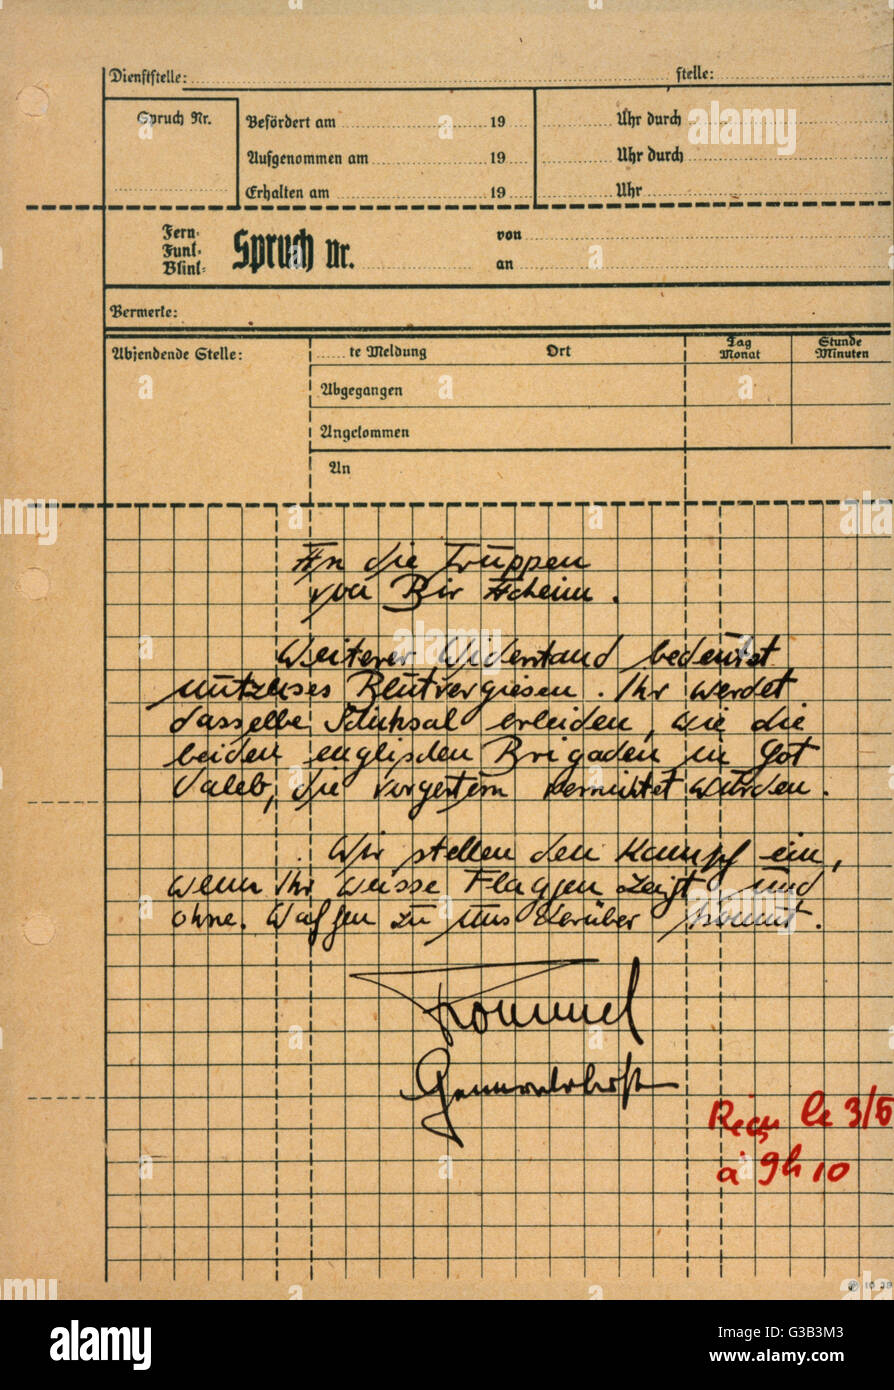 Dienststelle: stelle:
Spruch Nr. Befördert am 19 Uhr durch
Aufgenommen am 19 Uhr durch
Erhalten am 19 Uhr
Fern-
Funk-
Blink-
Spruch Nr. von
an
Vermerke:
Absendende Stelle: te Meldung Ort Tag Monat Stunde Minuten
Abgegangen
Angekommen
An
An die Truppen
von Bir Acheim.
Weiterer Widerstand bedeutet
nutzloses Blutvergiesen. Ihr werdet
dasselbe Schiksal erleiden, wie die
beiden englischen Brigaden in Got
Valeb, die vorgestern vernichtet wurden.
Wir stellen den Kampf ein,
wenn Ihr weisse Flaggen zeigt und
ohne Waffen zu uns herüber kommt.
Rommel
Generaloberst
Reçu le 3/6
à 9h10
alamy
Image ID: G3B3M3
www.alamy.com